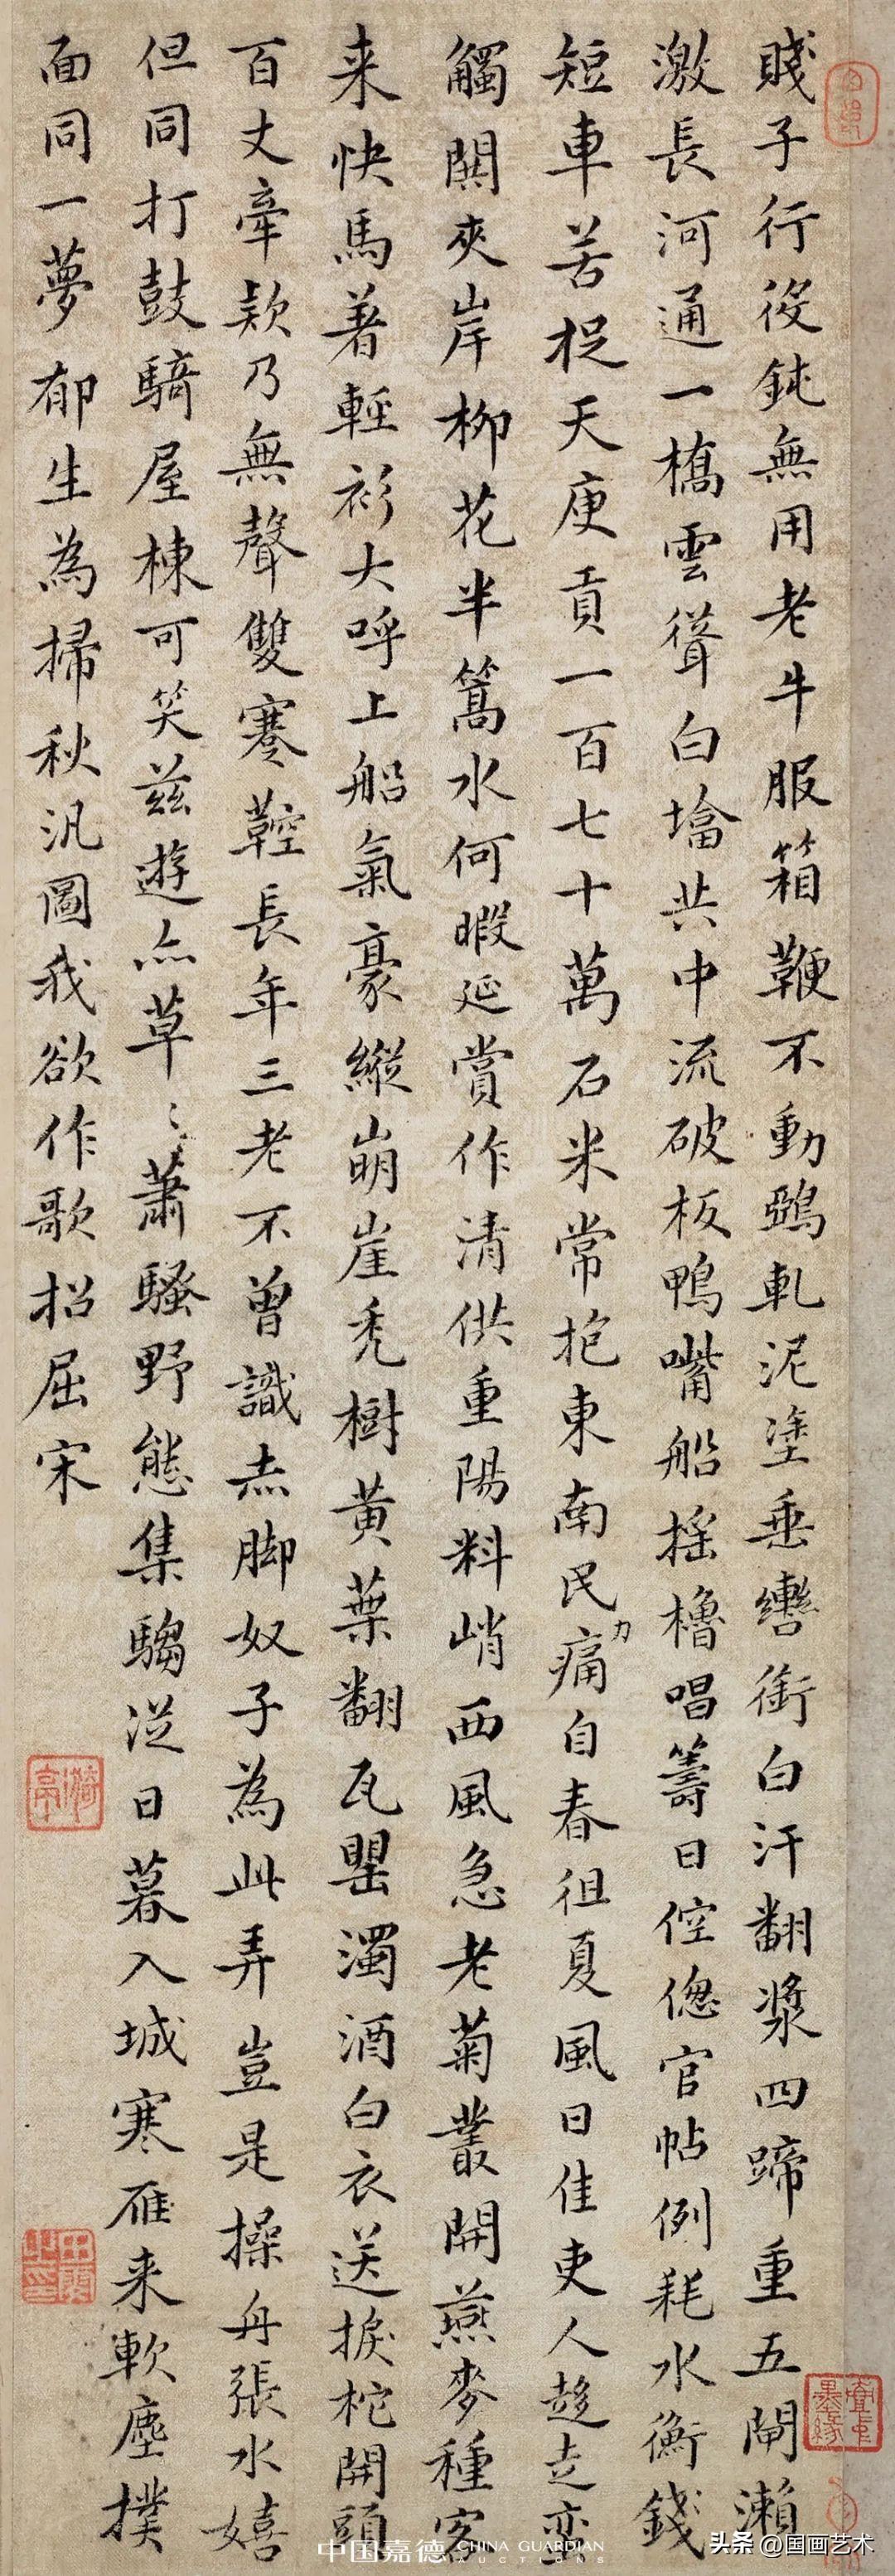 賤子行役鈍無用老牛服箱鞭不動鵶軋泥塗垂轡銜白汗翻漿四蹄重五閘瀨
激長河通一橋雲聳白墖共中流破板鴨嘴船搖櫓唱籌日倥傯官帖例耗水衡錢
短車苦捉天庾貢一百七十萬石米常抱東南民力痛自春徂夏風日佳吏人趍走恋
觸閼夾岸柳花半篙水何暇延賞作清供重陽料峭西風急老菊叢開燕麥種客
来快馬著輕衫大呼上船氣豪縱崩崖禿樹黄葉翻瓦罌濁酒白衣送捩柁開頭
百丈牽欵乃無聲雙蹇鞚長年三老不曾識赤脚奴子為此弄豈是操舟張水嬉
但同打鼓騎屋棟可笑兹遊亦草〻蕭騷野態集騶從日暮入城寒雁来軟塵撲
面同一夢郁生為掃秋汎圖我欲作歌招屈宋
漪亭
中国嘉德 CHINA GUARDIAN AUCTIONS
头条 @国画艺术